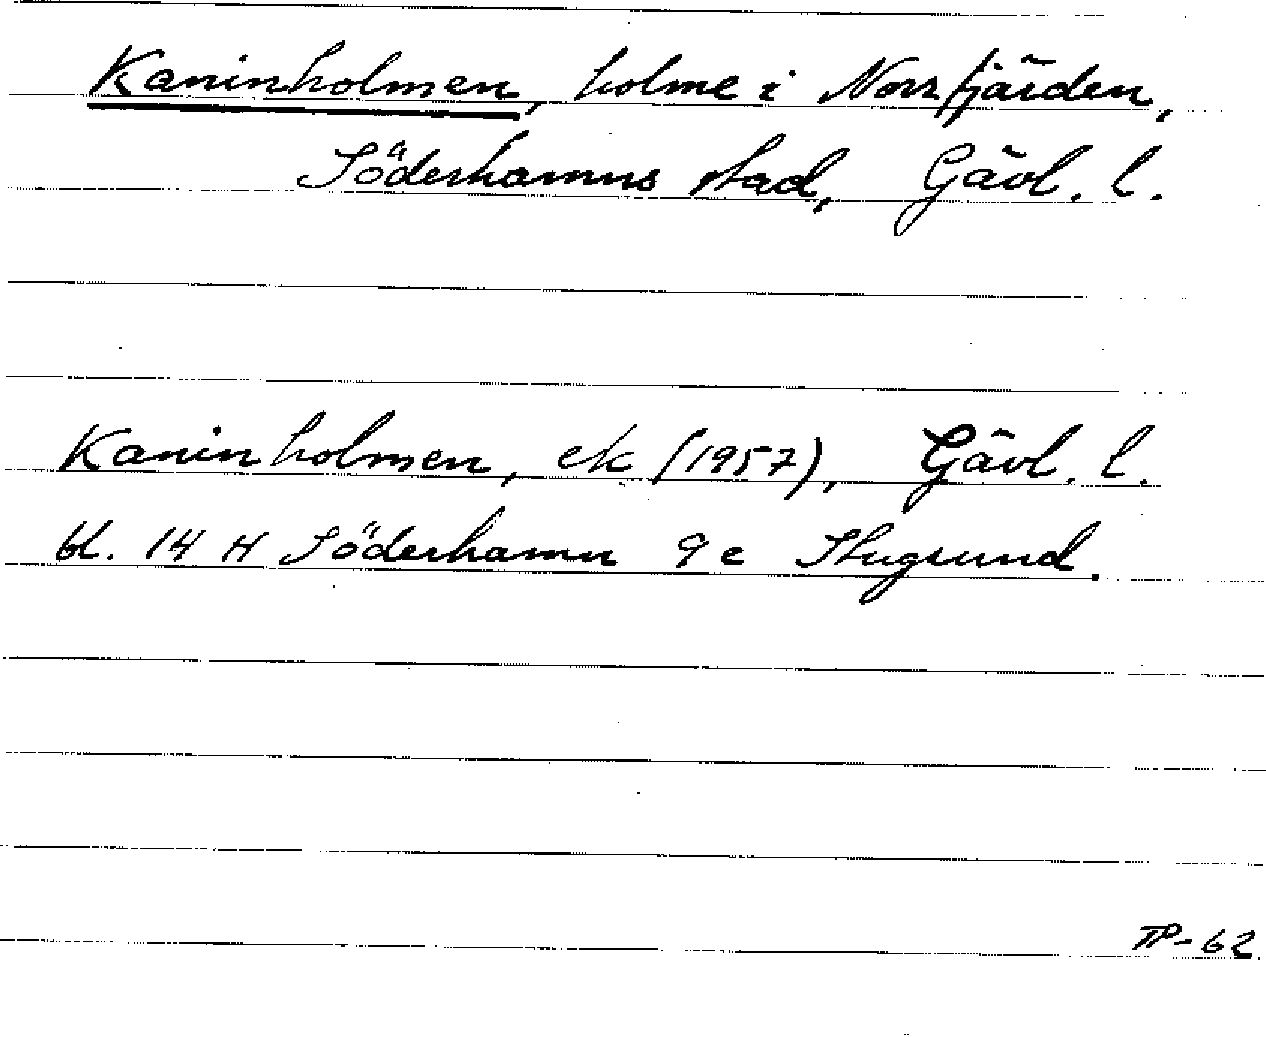 Kaninholmen, holme i Norrfjärden,
Söderhamns stad, Gävl. l.
Kaninholmen, ek (1957), Gävl. l.
bl. 14 H Söderhamn 9 c Stugsund.
TP-62